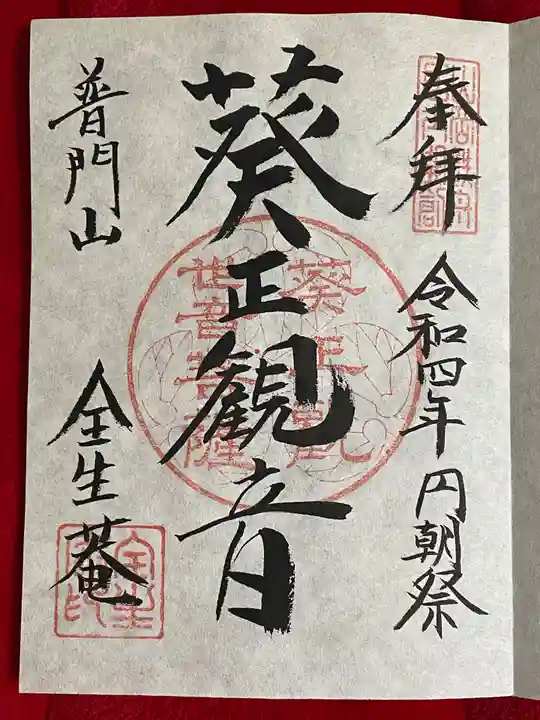 奉拝
令和四年 円朝祭
葵正観音
葵正観
世音菩薩
普門山
全生菴